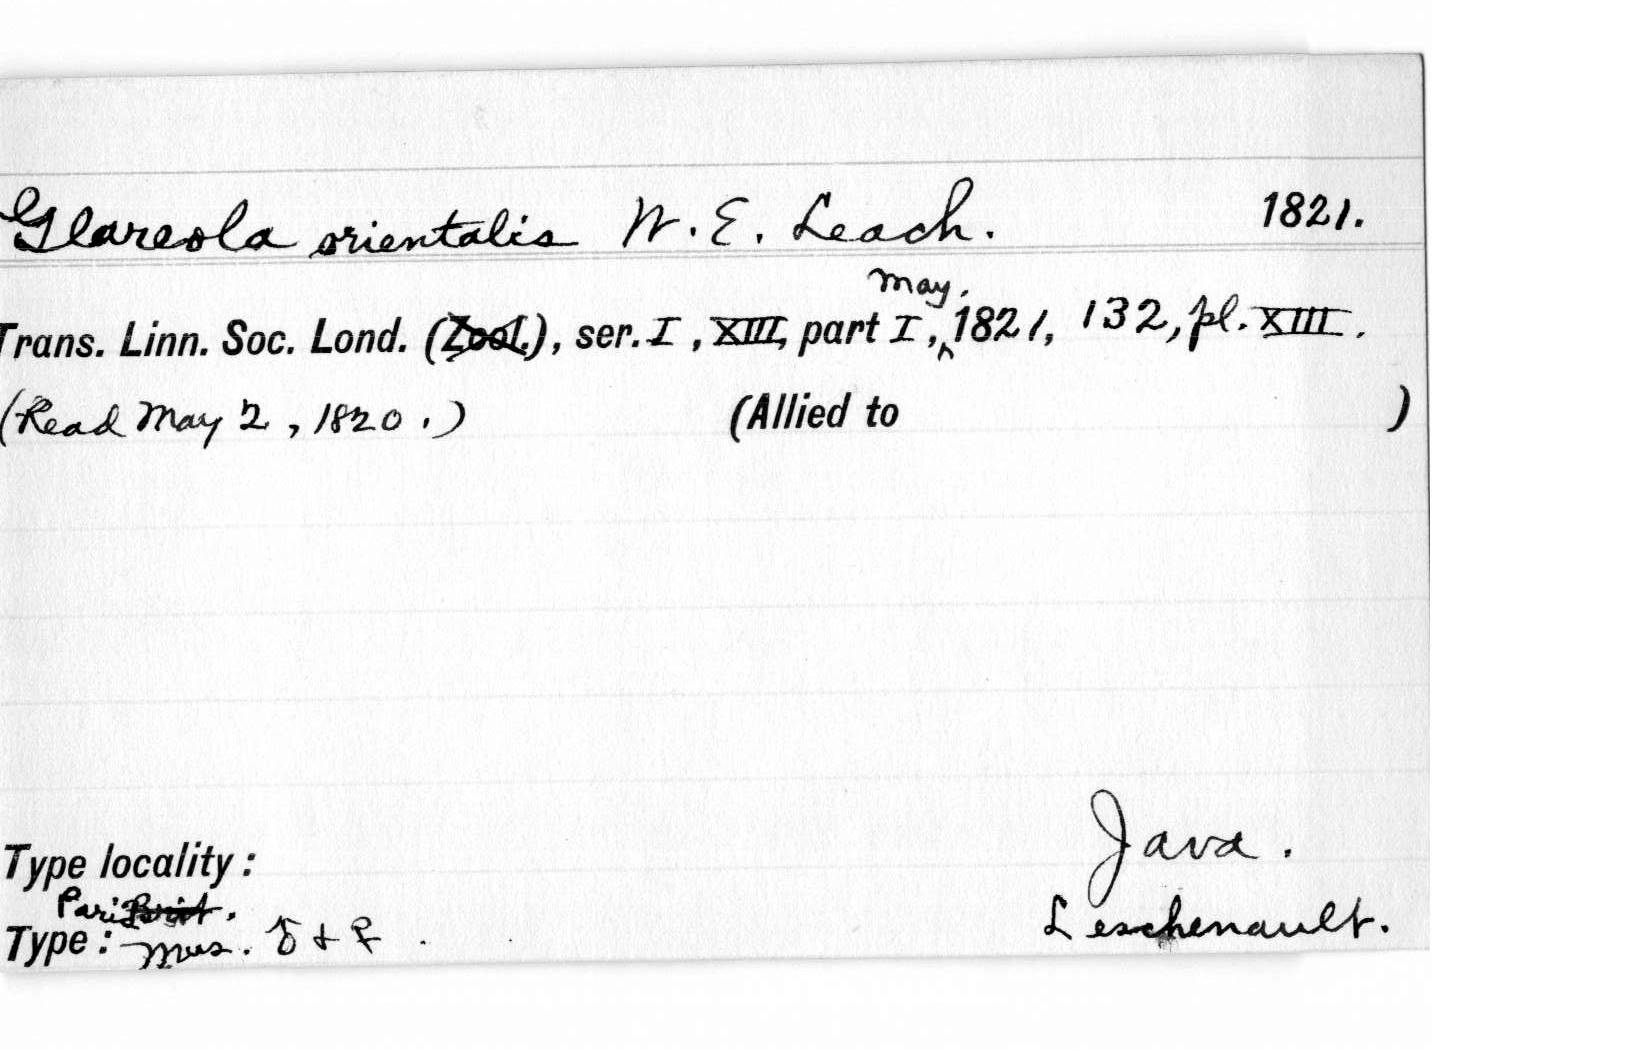 Glareola orientalis W. E. Leach. 1821.
May.
Trans. Linn. Soc. Lond. (Zool.), ser. I, XIII, part I, ^ 1821, 132, pl. XIII.
(Read May 2, 1820.) (Allied to )
Java.
Type locality:
Paris Brit. Leschenault.
Type: Mus. ♂ + ♀.